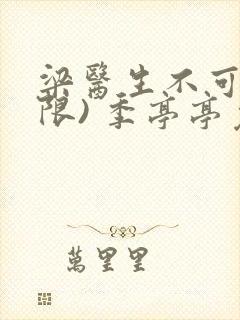 梁醫生不可
限) 季亭亭
萬里里